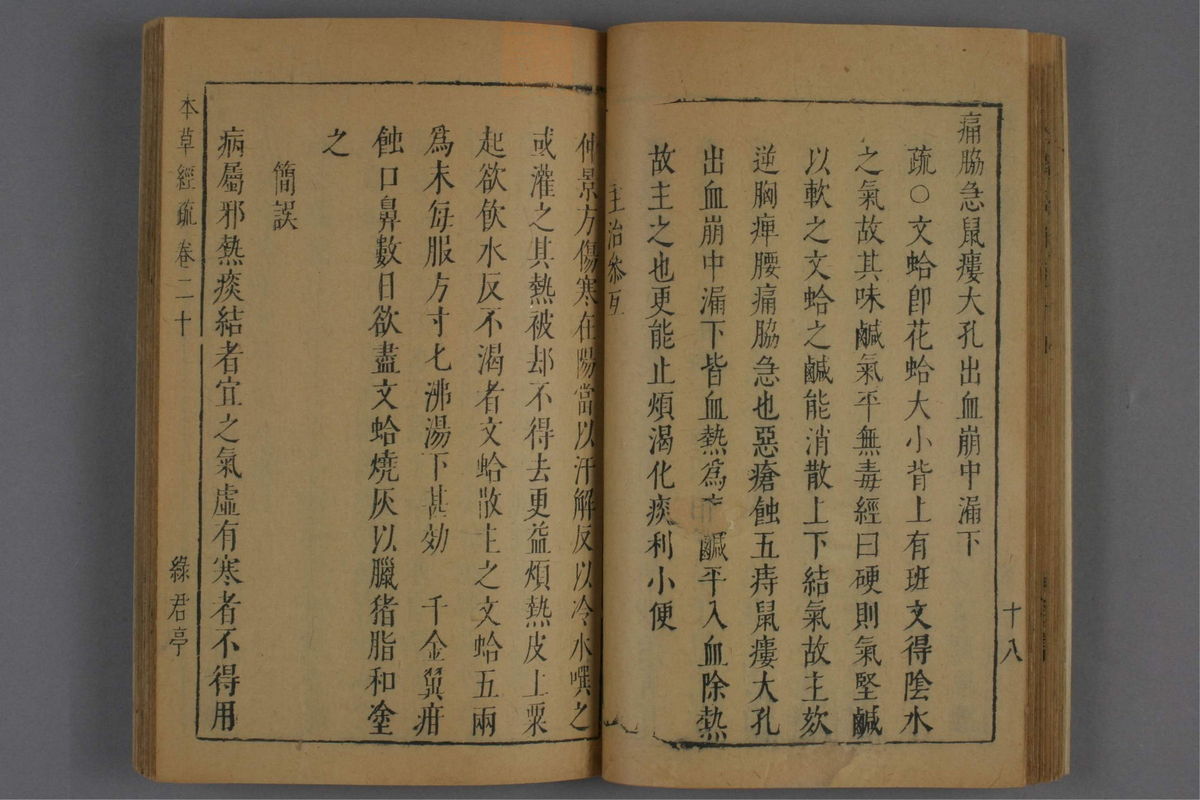 十八
痛脇急鼠瘻大孔出血崩中漏下
疏○文蛤卽花蛤大小背上有班文得陰水
之氣故其味鹹氣平無毒經曰硬則氣堅鹹
以軟之文蛤之鹹能消散上下結氣故主欬
逆胸痺腰痛脇急也惡瘡蝕五痔鼠瘻大孔
出血崩中漏下皆血熱爲 鹹平入血除熱
故主之也更能止煩渴化痰利小便
主治叅互
仲景方傷寒在陽當以汗解反以冷水噀之
或灌之其熱被却不得去更益煩熱皮上粟
起欲飮水反不渴者文蛤散主之文蛤五兩
爲末每服方寸匕沸湯下甚効 千金翼疳
蝕口鼻數日欲盡文蛤燒灰以臘猪脂和塗
之
簡誤
病屬邪熱痰結者宜之氣虛有寒者不得用
本草經疏 卷二十 綠君亭